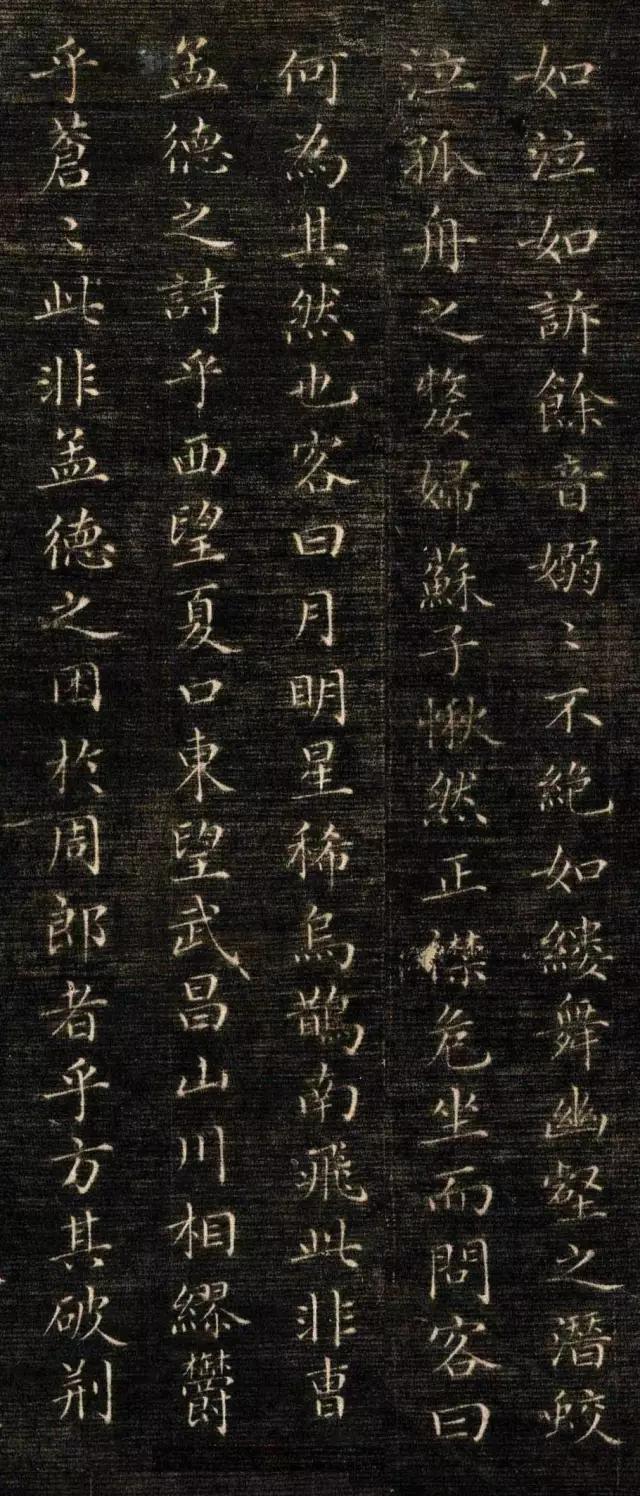 如泣如訴餘音嫋〻不絶如縷舞幽壑之潛蛟
泣孤舟之嫠婦蘇子愀然正襟危坐而問客曰
何為其然也客曰月明星稀烏鵲南飛此非曹
孟德之詩乎西望夏口東望武昌山川相繆鬱
乎蒼〻此非孟德之困於周郎者乎方其破荆